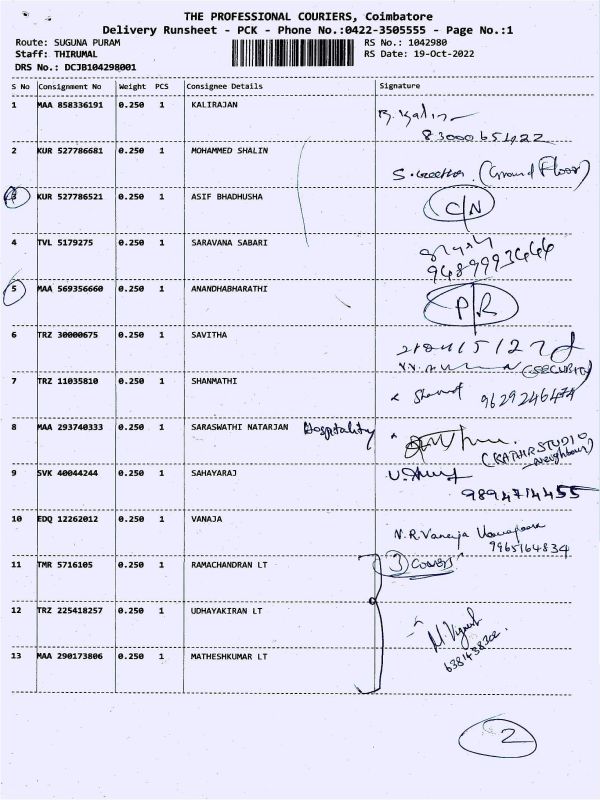 THE PROFESSIONAL COURIERS, Coimbatore
Delivery Runsheet - PCK - Phone No.:0422-3505555 - Page No.:1
Route: SUGUNA PURAM RS No.: 1042980
Staff: THIRUMAL RS Date: 19-Oct-2022
DRS No.: DCJB104298001
S No Consignment No Weight PCS Consignee Details Signature
1 MAA 858336191 0.250 1 KALIRAJAN
8300065422
2 KUR 527786681 0.250 1 MOHAMMED SHALIN
(Ground Floor)
3 KUR 527786521 0.250 1 ASIF BHADHUSHA C/N
4 TVL 5179275 0.250 1 SARAVANA SABARI
9489993444
5 MAA 569356660 0.250 1 ANANDHABHARATHI P/R
6 TRZ 30000675 0.250 1 SAVITHA
(SECURITY)
7 TRZ 11035810 0.250 1 SHANMATHI 9629246474
8 MAA 293740333 0.250 1 SARASWATHI NATARJAN Hospitality
(KATHIR STUDIO
Neighbour)
9 SVK 40044244 0.250 1 SAHAYARAJ
9894714455
10 EDQ 12262012 0.250 1 VANAJA N.R.Vanaja
9965164834
11 TMR 5716105 0.250 1 RAMACHANDRAN LT 3 Covers
12 TRZ 225418257 0.250 1 UDHAYAKIRAN LT
M.Vignesh
13 MAA 290173806 0.250 1 MATHESHKUMAR LT
2